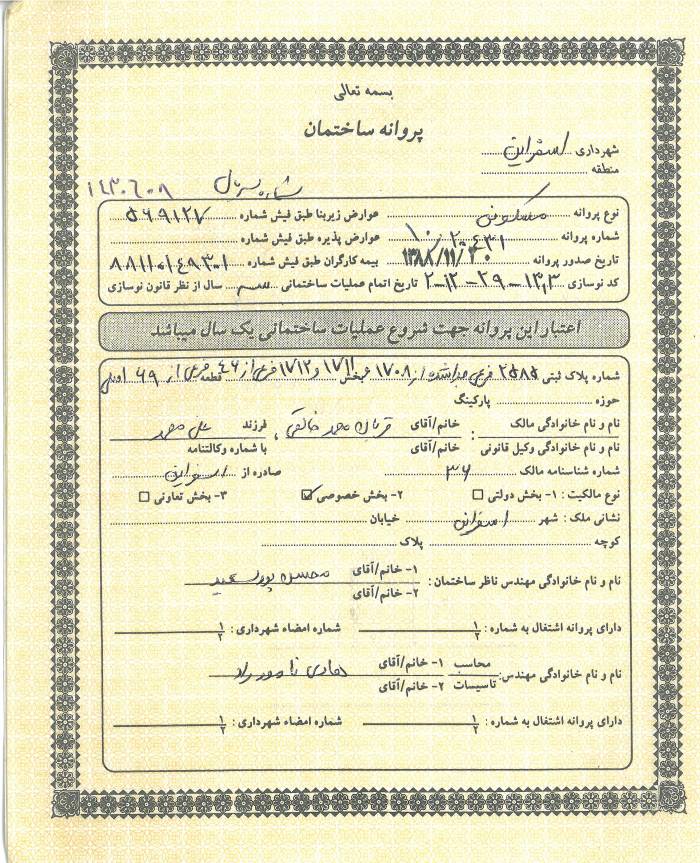 بسمه تعالی
پروانه ساختمان
شهرداری اسفراین
منطقه
شماره سریال ۱۴۳۰۶۰۸
نوع پروانه مسکونی عوارض زیربنا طبق فیش شماره ۵۶۹۱۲۷
شماره پروانه ۱۰/۲۰۴۳۱ عوارض پذیره طبق فیش شماره
تاریخ صدور پروانه ۱۳۸۸/۱۱/۲۰ بیمه کارگران طبق فیش شماره ۸۸۱۱۰۱۴۹۳۰۱
کد نوسازی ۲-۱۲-۲۹-۱۳٫۳ تاریخ اتمام عملیات ساختمانی سه سال از نظر قانون نوسازی
اعتبار این پروانه جهت شروع عملیات ساختمانی یک سال میباشد
شماره پلاک ثبتی ۲۵۸۵ فرعی از ۱۷۰۸ بخش ۱۷۱۱ و ۱۷۱۲ فرعی از ۴۶ قطعه فرعی از ۶۹ اصلی
حوزه پارکینگ
نام و نام خانوادگی مالک : خانم/آقای قربان محمد خالقی ، فرزند علی محمد
نام و نام خانوادگی وکیل قانونی خانم/آقای با شماره وکالتنامه
شماره شناسنامه مالک ۳۶ صادره از اسفراین
نوع مالکیت : ۱- بخش دولتی ☐ ۲- بخش خصوصی ☑ ۳- بخش تعاونی ☐
نشانی ملک : شهر اسفراین خیابان
کوچه پلاک
نام و نام خانوادگی مهندس ناظر ساختمان : ۱- خانم/آقای محسن پورسعید
۲- خانم/آقای
دارای پروانه اشتغال به شماره : ۱/۲ شماره امضاء شهرداری : ۱/۲
نام و نام خانوادگی مهندس: محاسب ۱- خانم/آقای هادی نامور راد
تاسیسات ۲- خانم/آقای
دارای پروانه اشتغال به شماره : ۱/۲ شماره امضاء شهرداری : ۱/۲